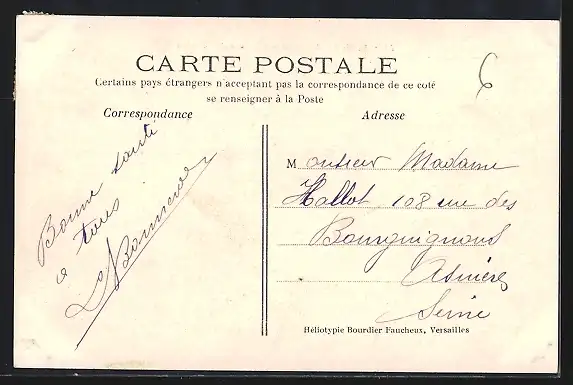 6
CARTE POSTALE
Certains pays étrangers n'acceptant pas la correspondance de ce coté
se renseigner à la Poste
Correspondance
Adresse
Bonne santé
à tous
Monsieur Madame
Hallot 108 rue des
Bourguignons
Asnières
Seine
Héliotypie Bourdier Faucheux, Versailles